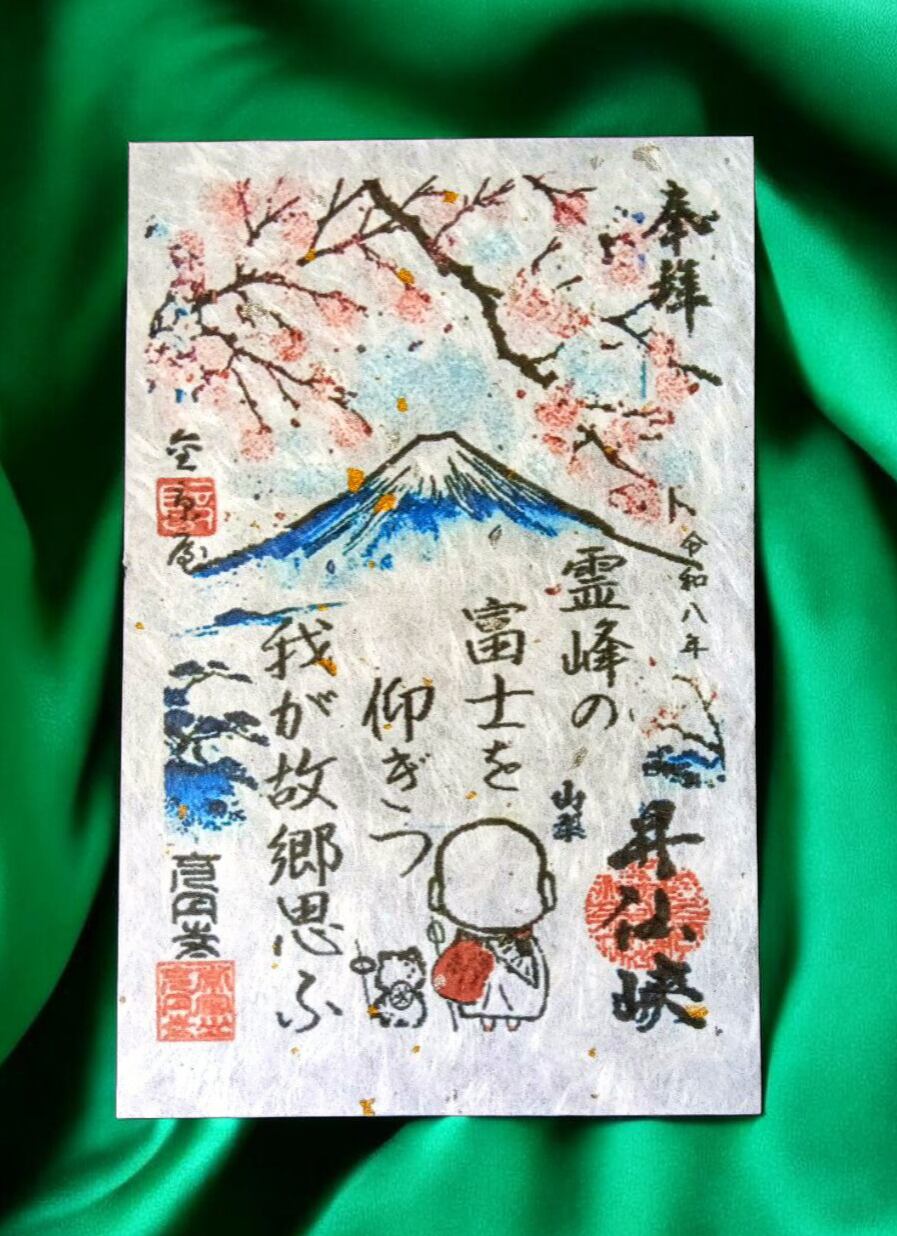 奉拝
令和八年
昇仙峡
山梨
霊峰の
富士を
仰ぎつ
我が故郷思ふ